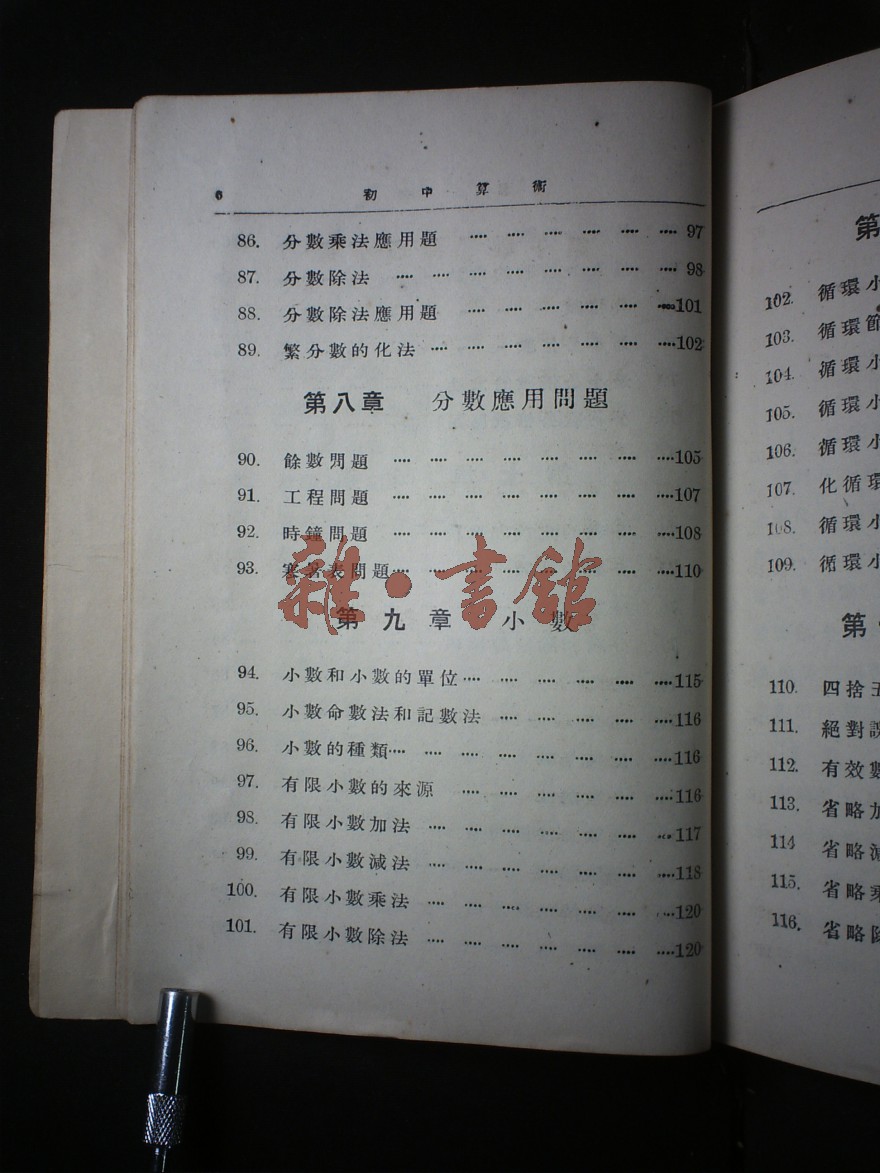 6 初中算術
86. 分數乘法應用題 ···· ···· ···· ···· ···· ···· 97
87. 分數除法 ···· ···· ···· ···· ···· ···· ···· ···· 98
88. 分數除法應用題 ···· ···· ···· ···· ···· ····101
89. 繁分數的化法 ···· ···· ···· ···· ···· ···· ····102
第八章 分數應用問題
90. 餘數問題 ···· ···· ···· ···· ···· ···· ···· ····105
91. 工程問題 ···· ···· ···· ···· ···· ···· ···· ····107
92. 時鐘問題 ···· ···· ···· ···· ···· ···· ···· ····108
93. 寒暑表問題 ···· ···· ···· ···· ···· ···· ···· ····110
雜·書館
第九章 小數
94. 小數和小數的單位 ···· ···· ···· ···· ···· ····115
95. 小數命數法和記數法 ···· ···· ···· ···· ····116
96. 小數的種類 ···· ···· ···· ···· ···· ···· ···· ····116
97. 有限小數的來源 ···· ···· ···· ···· ···· ····116
98. 有限小數加法 ···· ···· ···· ···· ···· ···· ····117
99. 有限小數減法 ···· ···· ···· ···· ···· ···· ····118
100. 有限小數乘法 ···· ···· ···· ···· ···· ···· ····120
101. 有限小數除法 ···· ···· ···· ···· ···· ···· ····120
第
102. 循環小
103. 循環節
104. 循環小
105. 循環小
106. 循環小
107. 化循環
108. 循環小
109. 循環小
第
110. 四捨五
111. 絕對誤
112. 有效數
113. 省略加
114 省略減
115. 省略乘
116. 省略除